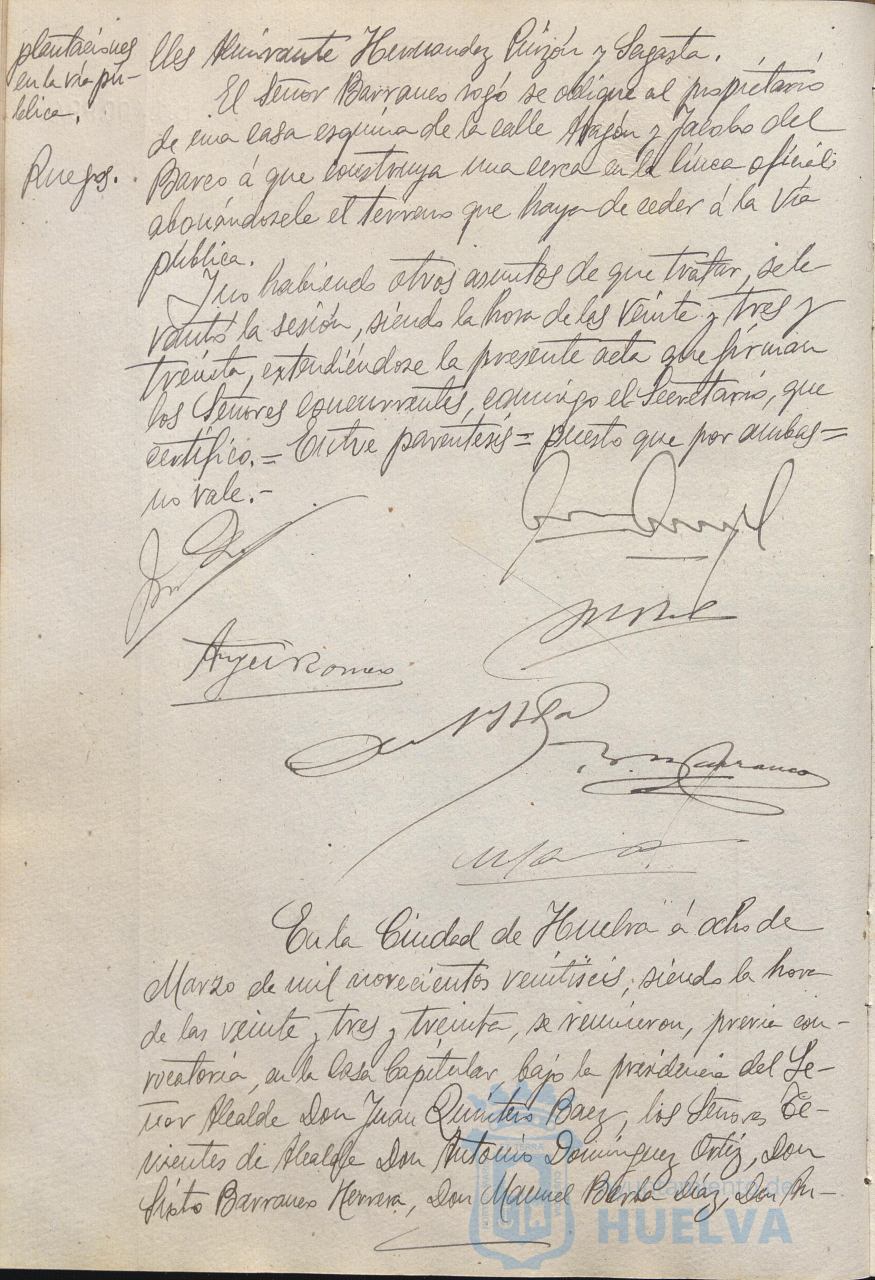 plantaciones
en la vía pú-
blica.
Ruegos.
lles Almirante Hernandez Pinzón y Sagasta.
El Señor Barranco rogó se obligue al propietario
de una casa esquina de la calle Aragón y Jacobo del
Barco á que construya una cerca en la línea oficial
abonándosele el terreno que haya de ceder á la Vía
pública.
Y no habiendo otros asuntos de que tratar, se le
vantó la sesión, siendo la hora de las veinte y tres y
treinta, extendiéndose la presente acta que firman
los Señores concurrentes, conmigo el Secretario, que
certifico.= Entre parentesis = puesto que por ambas =
no vale.-
Angel Romero
Barranco
En la Ciudad de Huelva á ocho de
Marzo de mil novecientos veintiseis, siendo la hora
de las veinte y tres y treinta, se reunieron, previa con-
vocatoria, en la Casa Capitular bajo la presidencia del Se-
ñor Alcalde Don Juan Quintero Baez, los Señores Te-
nientes de Alcalde Don Antonio Domínguez Ortiz, Don
Sixto Barranco Herrera, Don Manuel Barba Díaz, Don An-
Ayuntamiento de
HUELVA